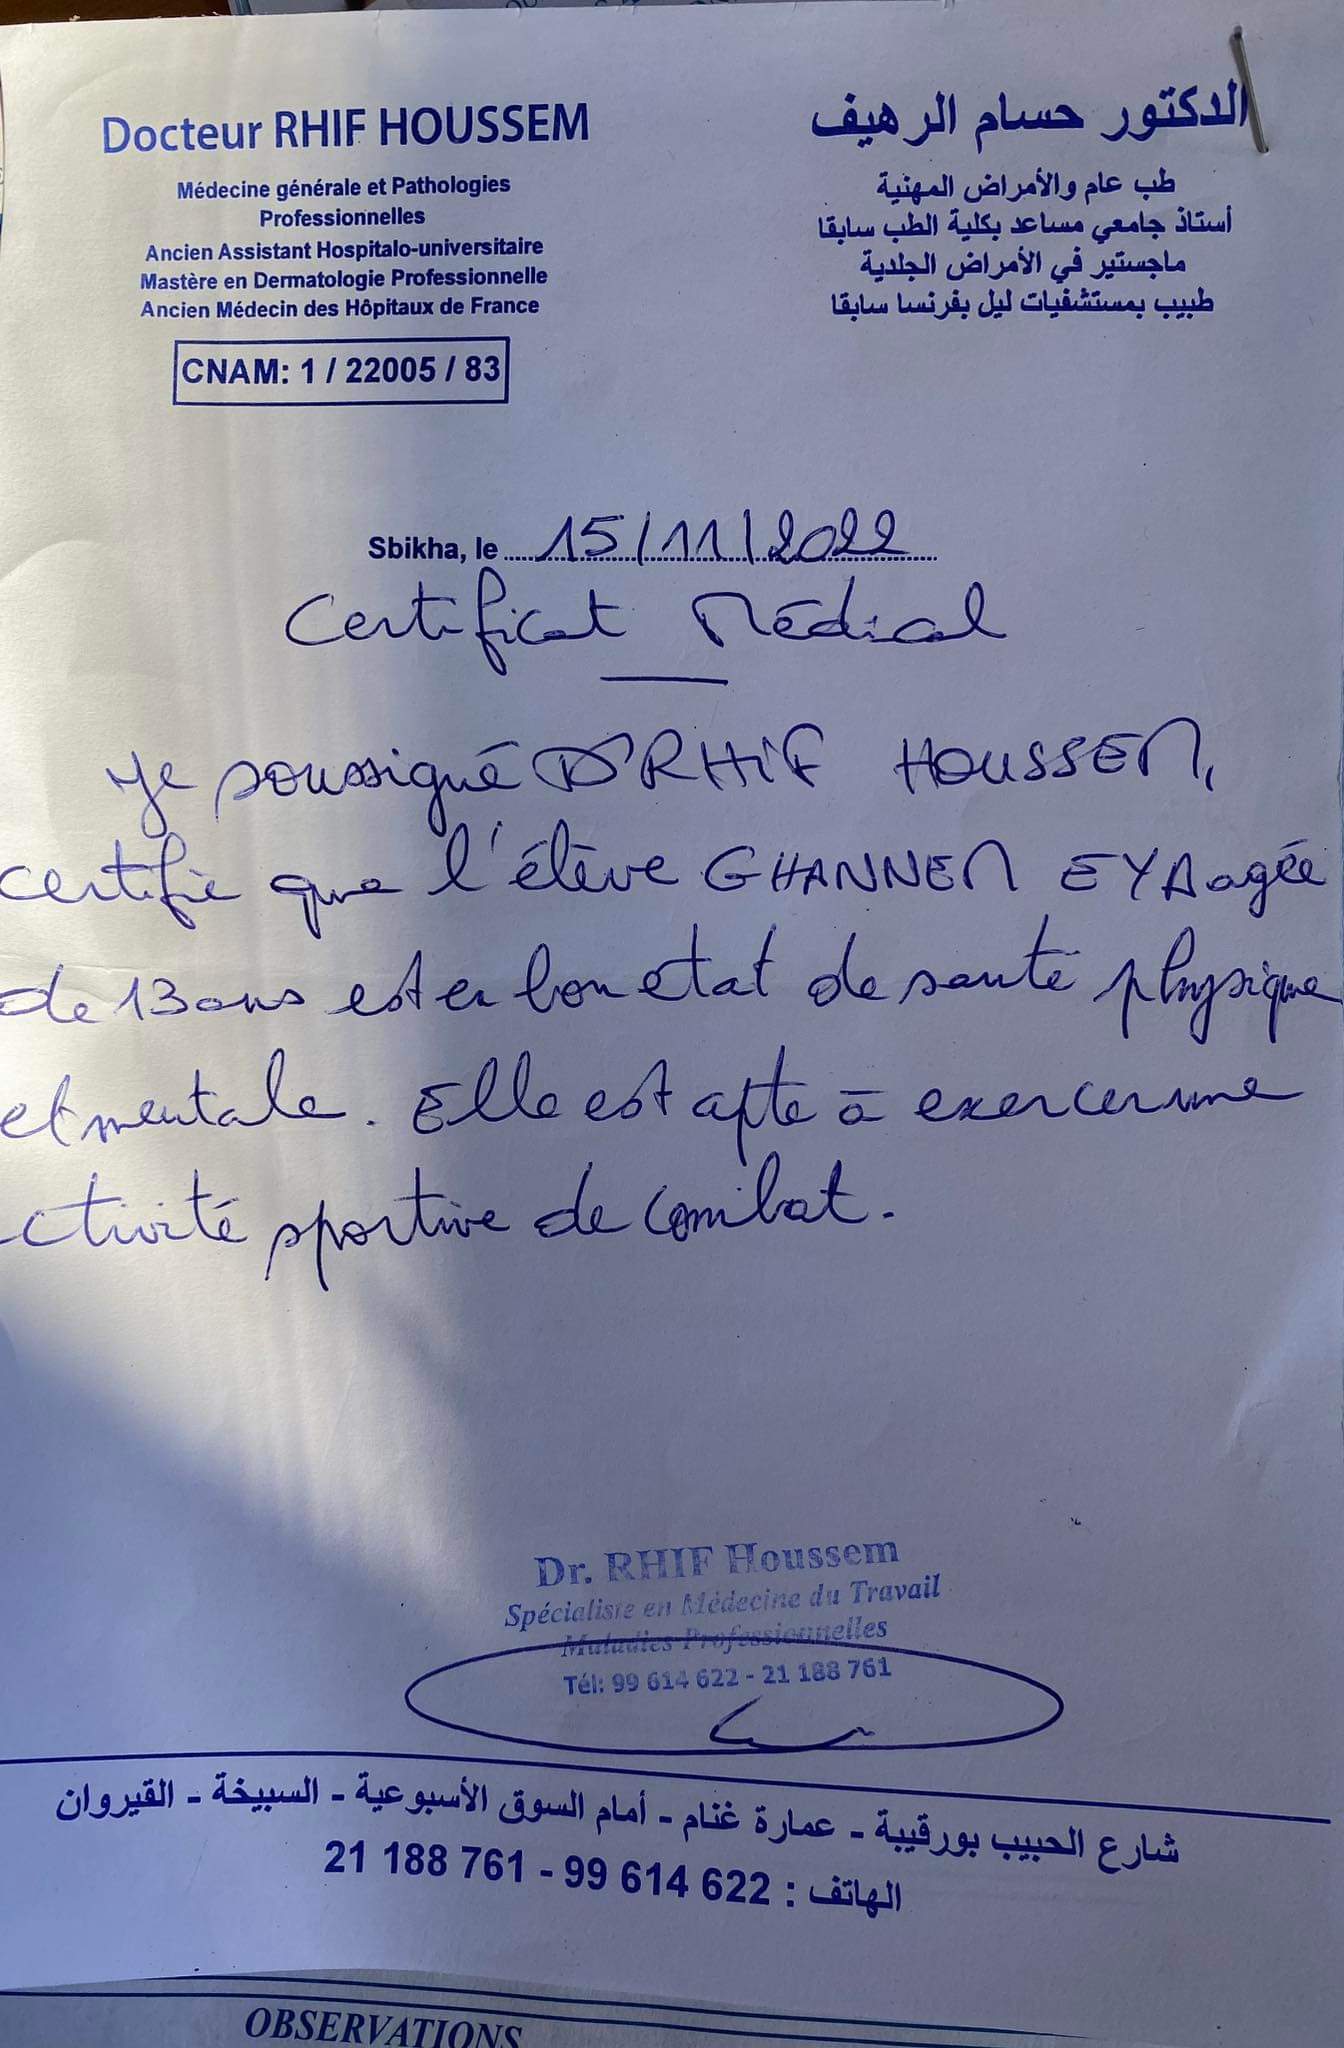 Docteur RHIF HOUSSEM
Médecine générale et Pathologies
Professionnelles
Ancien Assistant Hospitalo-universitaire
Mastère en Dermatologie Professionnelle
Ancien Médecin des Hôpitaux de France
CNAM: 1 / 22005 / 83
الدكتور حسام الرهيف
طب عام والأمراض المهنية
أستاذ جامعي مساعد بكلية الطب سابقا
ماجستير في الأمراض الجلدية
طبيب بمستشفيات ليل بفرنسا سابقا
Sbikha, le 15/11/2022
Certificat Médical
Je soussigné Dr RHIF HOUSSEM,
certifie que l'élève GHANNEM EYA agée
de 13 ans est en bon etat de santé physique
et mentale. Elle est apte à exercer une
ctivité sportive de combat.
Dr. RHIF Houssem
Spécialiste en Médecine du Travail
Maladies Professionnelles
Tél: 99 614 622 - 21 188 761
شارع الحبيب بورقيبة - عمارة غنام - أمام السوق الأسبوعية - السبيخة - القيروان
الهاتف : 99 614 622 - 21 188 761
OBSERVATIONS